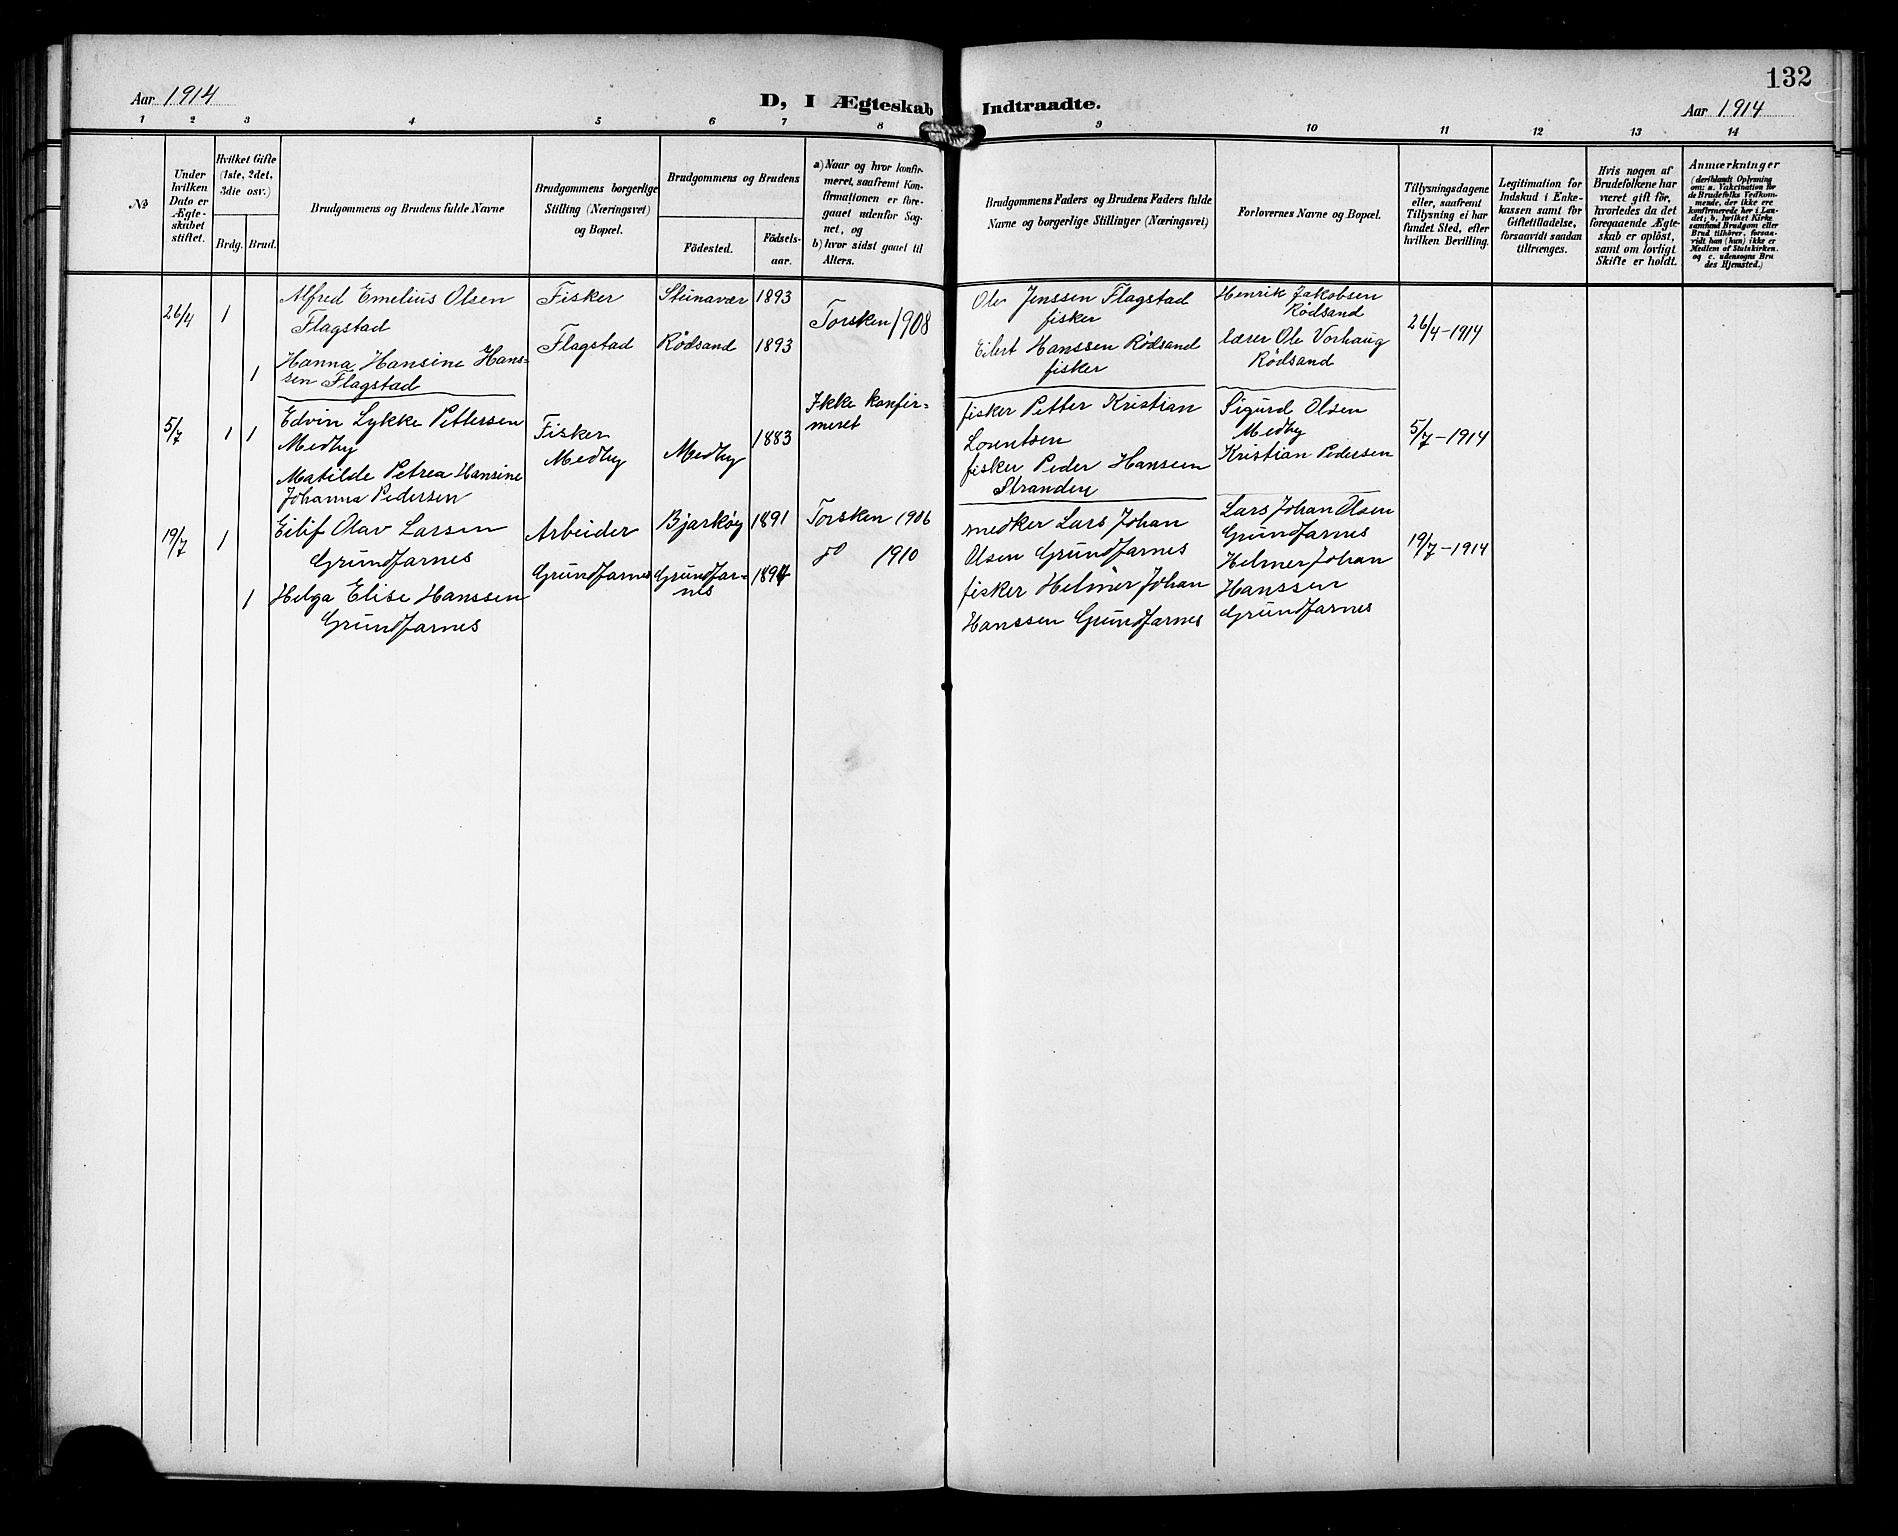 132
Aar 1914
D, I Ægteskab Indtraadte.
Aar 1914
1 2 3 4 5 6 7 8 9 10 11 12 13 14
No
Under
hvilken
Dato er
Ægte-
skabet
stiftet.
Hvilket Gifte
(1ste, 2det,
3die osv.)
Brdg. Brud.
Brudgommens og Brudens fulde Navne
Brudgommens borgerlige
Stilling (Næringsvei)
og Bopæl.
Brudgommens og Brudens
Födested.
Födsels-
aar.
a) Naar og hvor konfir-
meret, saafremt Kon-
firmationen er fore-
gaaet udenfor Sog-
net, og
b) hvor sidst gaaet til
Alters.
Brudgommens Faders og Brudens Faders fulde
Navne og borgerlige Stillinger (Næringsvei)
Forlovernes Navne og Bopæl.
Tillysningsdagene
eller, saafremt
Tillysning ei har
fundet Sted, efter
hvilken Bevilling.
Legitimation for
Indskud i Enke-
kassen samt for
Giftetilladelse,
forsaavidt saadan
tiltrænges.
Hvis nogen af
Brudefolkene har
været gift för,
hvorledes da det
foregaaende Ægte-
skab er oplöst,
samt om lovligt
Skifte er holdt.
Anmærkninger
(deriblandt Oplysning
om: a. Vakcination for
de Brudefolks Vedkom-
mende, der ikke ere
konfirmerede her i Lan-
det; b. hvilket Kirke
samfund Brudgom eller
Brud tilhörer, forsaa-
vidt han (hun) ikke er
Medlem af Statskirken.
og c. udensogns Bru
des Hjemsted.)
26/4 1
Alfred Emelius Olsen
Flagstad
1
Hanna Hansine Hans-
sen Flagstad
Fisker
Flagstad
Steinavær 1893
Rødsand 1893
Torsken 1908
Ole Jenssen Flagstad
fisker
Eilert Hanssen Rødsand
fisker
Henrik Jakobsen
Rødsand
lærer Ole Vorhaug
Rødsand
26/4-1914
5/7 1 1
Edvin Lykke Pettersen
Medby
Matilde Petrea Hansine
Johanna Pedersen
Fisker
Medby
Medby 1883
Ikke konfir-
meret
fisker Petter Kristian
Lorentsen
fisker Peder Hansen
Stranden
Sigurd Olsen
Medby
Kristian Pedersen
5/7-1914
19/7 1
Eilif Olav Larsen
Grundfarnes
1
Helga Elise Hanssen
Grundfarnes
Arbeider
Grundfarnes
Bjarkøy 1891
Grundfar-
nes 1894
Torsken 1906
do 1910
snedker Lars Johan
Olsen Grundfarnes
fisker Helmer Johan
Hanssen Grundfarnes
Lars Johan Olsen
Grundfarnes
Helmer Johan
Hanssen
Grundfarnes
19/7-1914